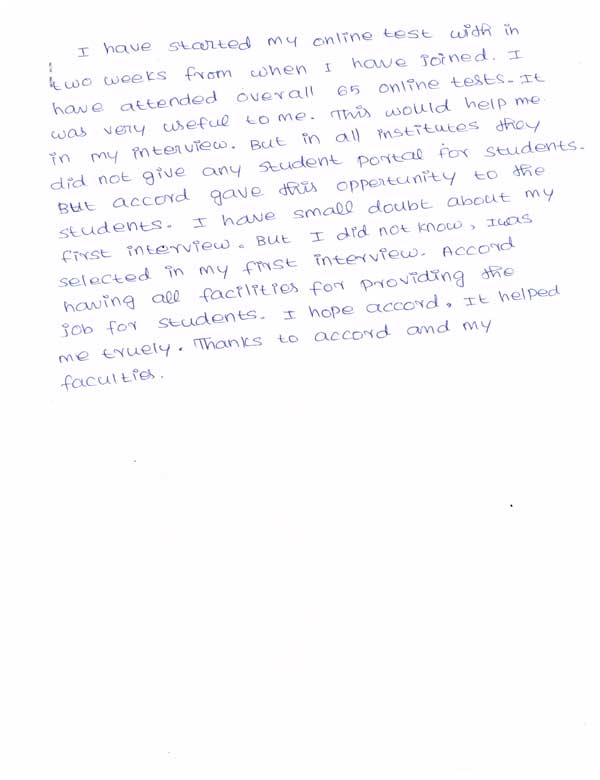 I have started my online test with in
two weeks from when I have joined. I
have attended overall 65 online tests. It
was very useful to me. This would help me
in my interview. But in all institutes they
did not give any student portal for students.
But accord gave this oppertunity to the
students. I have small doubt about my
first interview. But I did not know, I was
selected in my first interview. Accord
having all facilities for providing the
job for students. I hope accord, It helped
me truely. Thanks to accord and my
faculties.